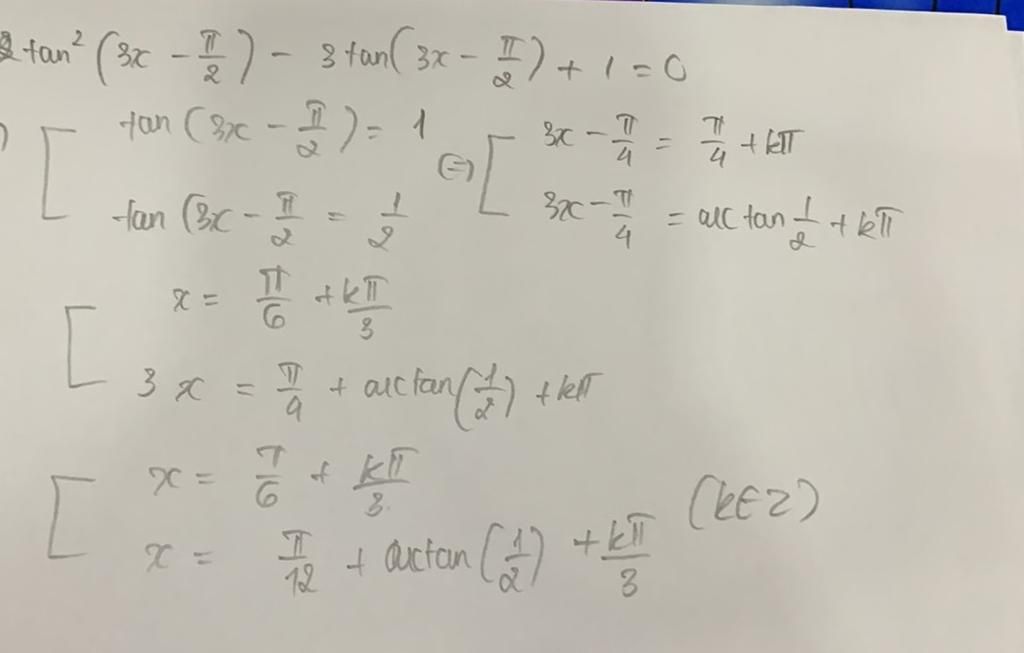 2 tan² (3x − π/2) − 3 tan(3x − π/2) + 1 = 0
) [ tan (3x − π/2) = 1 (=) [ 3x − π/4 = π/4 + kπ
tan (3x − π/2 = 1/2 3x − π/4 = arctan 1/2 + kπ
[ x = π/6 + kπ/3
3x = π/4 + arctan(1/2) + kπ
[ x = π/6 + kπ/3
x = π/12 + arctan(1/2) + kπ/3 (k∈Z)